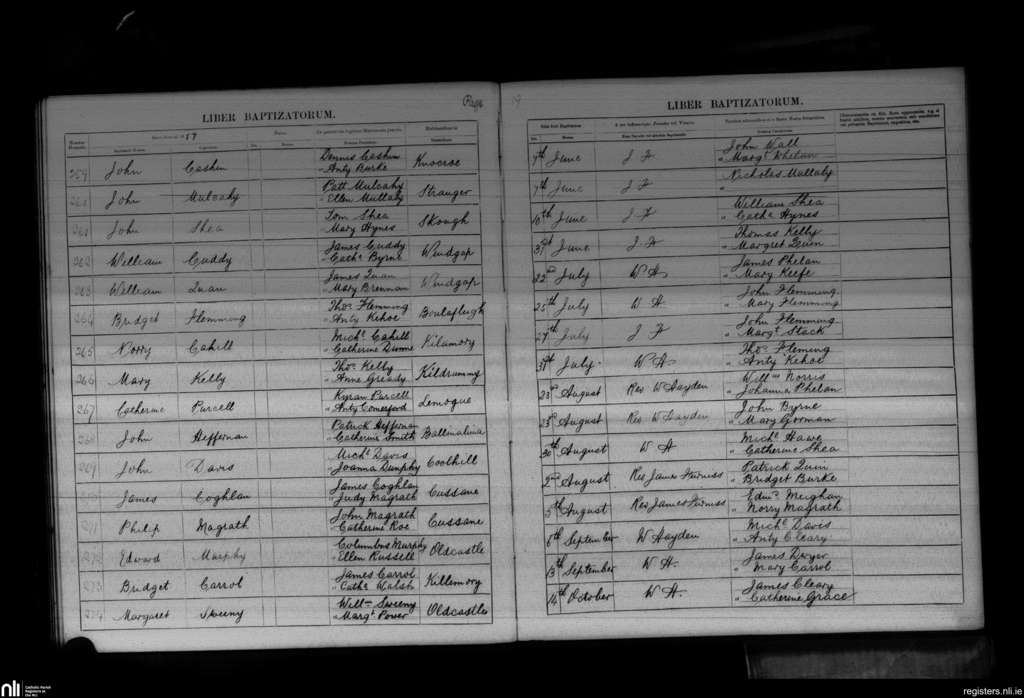 Page 19
LIBER BAPTIZATORUM.
LIBER BAPTIZATORUM.
57
259 John Cashin Dennis Cashin Knocroe 7th June J F John Wall
" Anty Burke " Margt Whelan
John Mulcahy Patt Mulcahy Stranger 7th June J F Nicholas Mullaly
" Ellen Mullaly "
John Shea Tom Shea Skough 10th June J F William Shea
" Mary Hynes " Cathe Hynes
262 William Cuddy James Cuddy Windgap June J F Thomas Kelly
" Cathe Byrne " Margret Quin
263 William Quan James Quan Windgap 22nd July W H James Phelan
" Mary Brennan " Mary Keefe
264 Bridget Flemming Thos Flemming 25th July W H John Flemming
" Anty Kehoe " Mary Flemming
265 Norry Cahill Michl Cahill Kilamory 27th July J F John Flemming
" Catherine Dunne " Margt Stack
266 Mary Kelly Thos Kelly Kildrummy July W H Thos Fleming
" Anne Gready " Anty Kehoe
267 Catherine Purcell Kyran Purcell Lemogue 23rd August Rev W Hayden Willm Norris
" Anty Comerford " Johanna Phelan
John Heffernan Patrick Heffernan Ballinalina 23rd August Rev W Hayden John Byrne
" Catherine Smith " Mary Gorman
269 John Davis Michl Davis Coolhill 30th August W H Michl Hawe
" Joanna Dunphy " Catherine Shea
James Coghlan James Coghlan Cussane 2nd August Rev James Furniss Patrick Quin
" Judy Magrath " Bridget Burke
Philip Magrath John Magrath Cussane 5th August Rev James Furniss Edmd Meighan
" Catherine Roe " Norry Magrath
272 Edward Murphy Columbus Murphy Oldcastle 6th September W Hayden Michl Davis
" Ellen Russell " Anty Cleary
273 Bridget Carrol James Carrol Killemory 13th September W H James Dwyer
" Cathe Walsh " Mary Carrol
274 Margaret Sweeny Willm Sweeny Oldcastle 14th October W H James Cleary
" Margt Power " Catherine Grace
nli Catholic Parish Registers at the NLI
registers.nli.ie